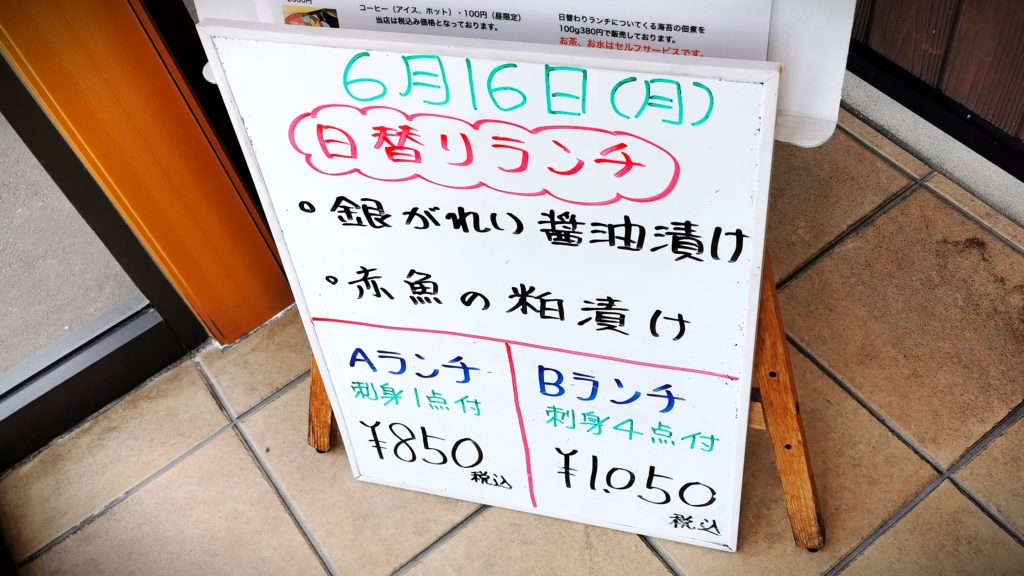 2000円
コーヒー（アイス、ホット）・100円（昼限定）
当店は税込み価格となっております。
日替わりランチについてくる海苔の佃煮を
100g380円で販売しております。
お茶、お水はセルフサービスです。
6月16日(月)
日替りランチ
。銀がれい醤油漬け
。赤魚の粕漬け
Aランチ
刺身1点付
¥850
税込
Bランチ
刺身4点付
¥1.050
税込